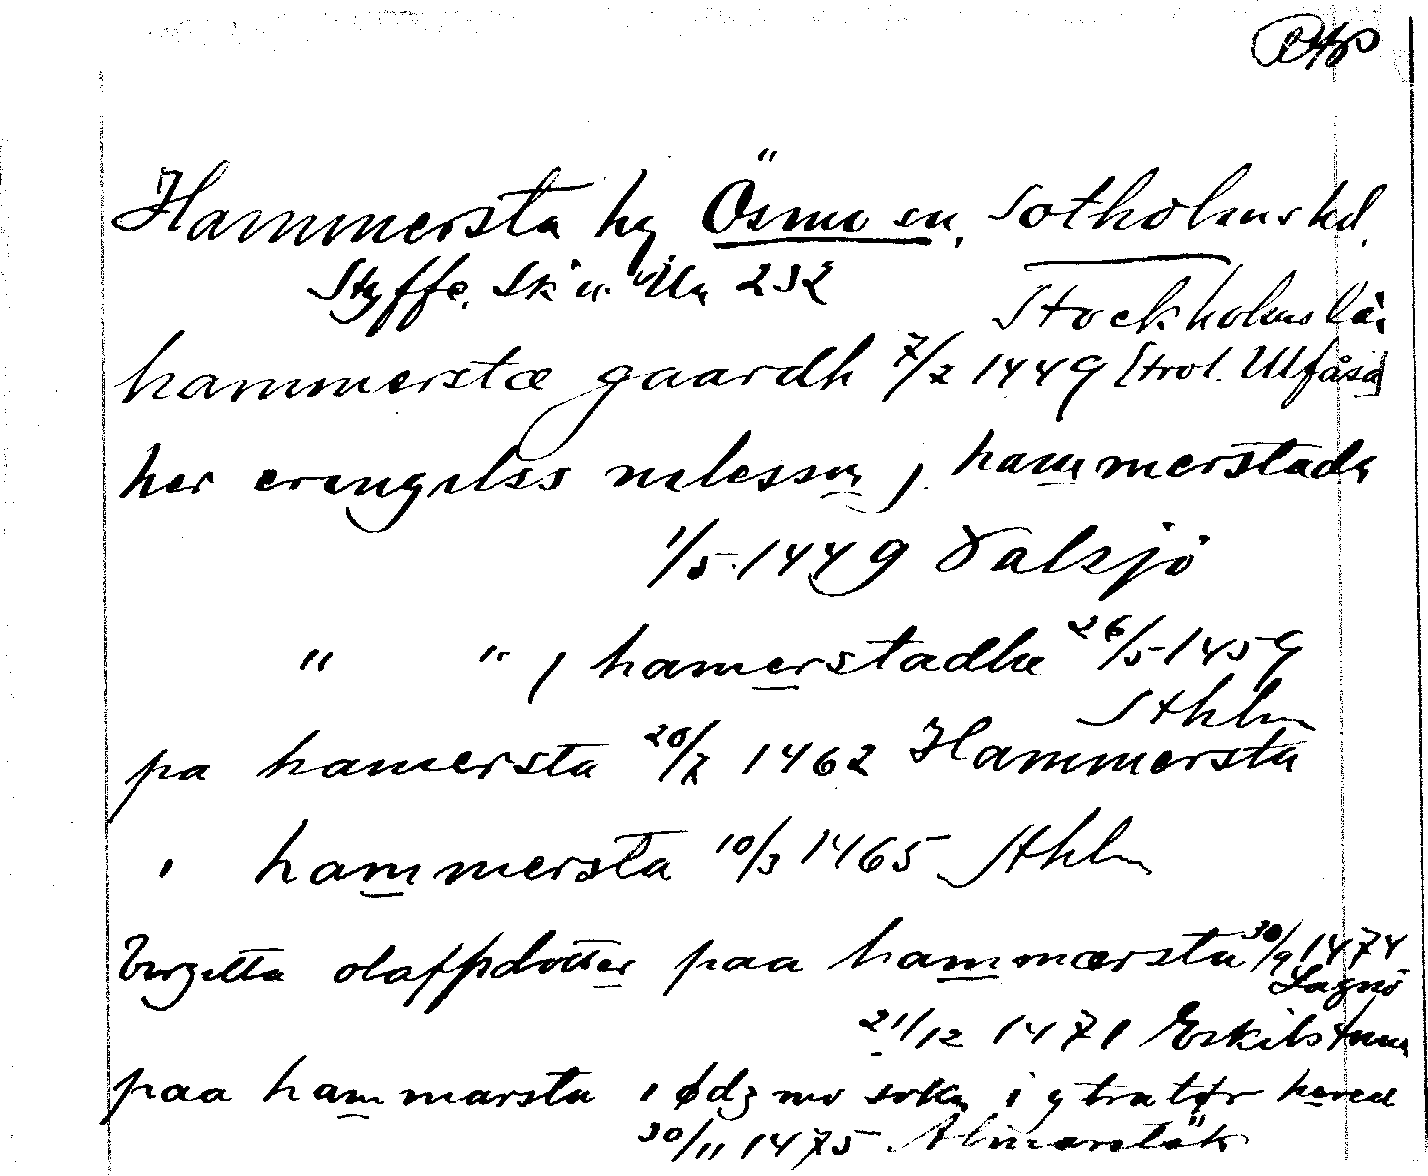 Hammersta by Ösmo sn, Sotholms hd.
Styffe, Sk. u. Un 232
Stockholms län
hammerstæ gaardh 7/2 1449 [trol. Ulfåsa]
her erengilss nilesson j hammerstadh
1/5 1449 Valsjö
" " j hamerstadhæ 26/5 1459
Sthlm
pa hamersta 20/7 1462 Hammersta
" hammersta 10/3 1465 Sthlm
birgitta olaffsdotter paa hammærsta 30/9 1474
Lagnö
21/12 1471 Eskilstuna
paa hammarsta i ødzmo sokn i ytratør hæred
30/11 1475 Almarestäk